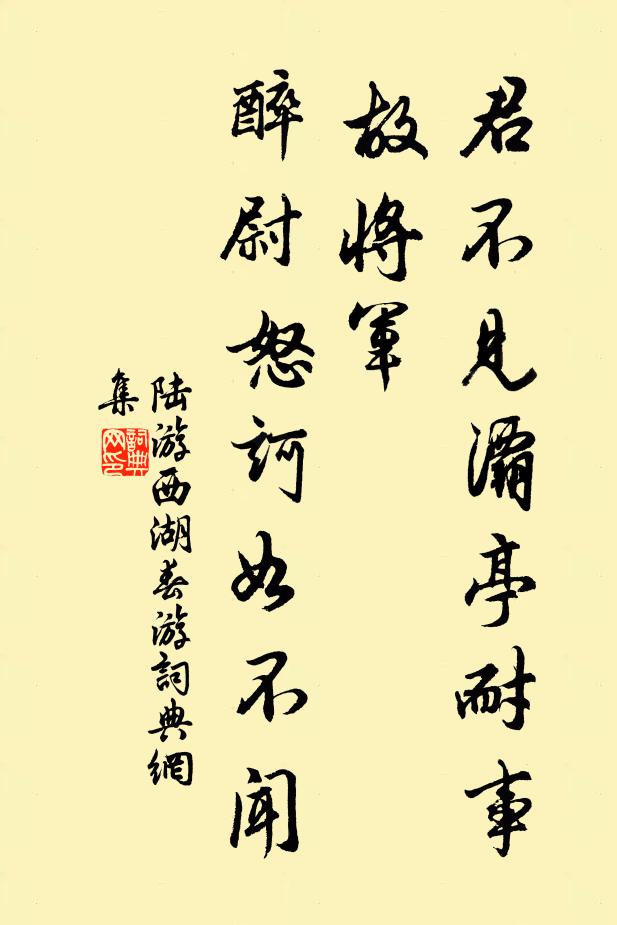 君不見灞亭耐事
故將軍
醉尉怒訶如不聞
陆游西湖春游詞典網
集
詞典网印